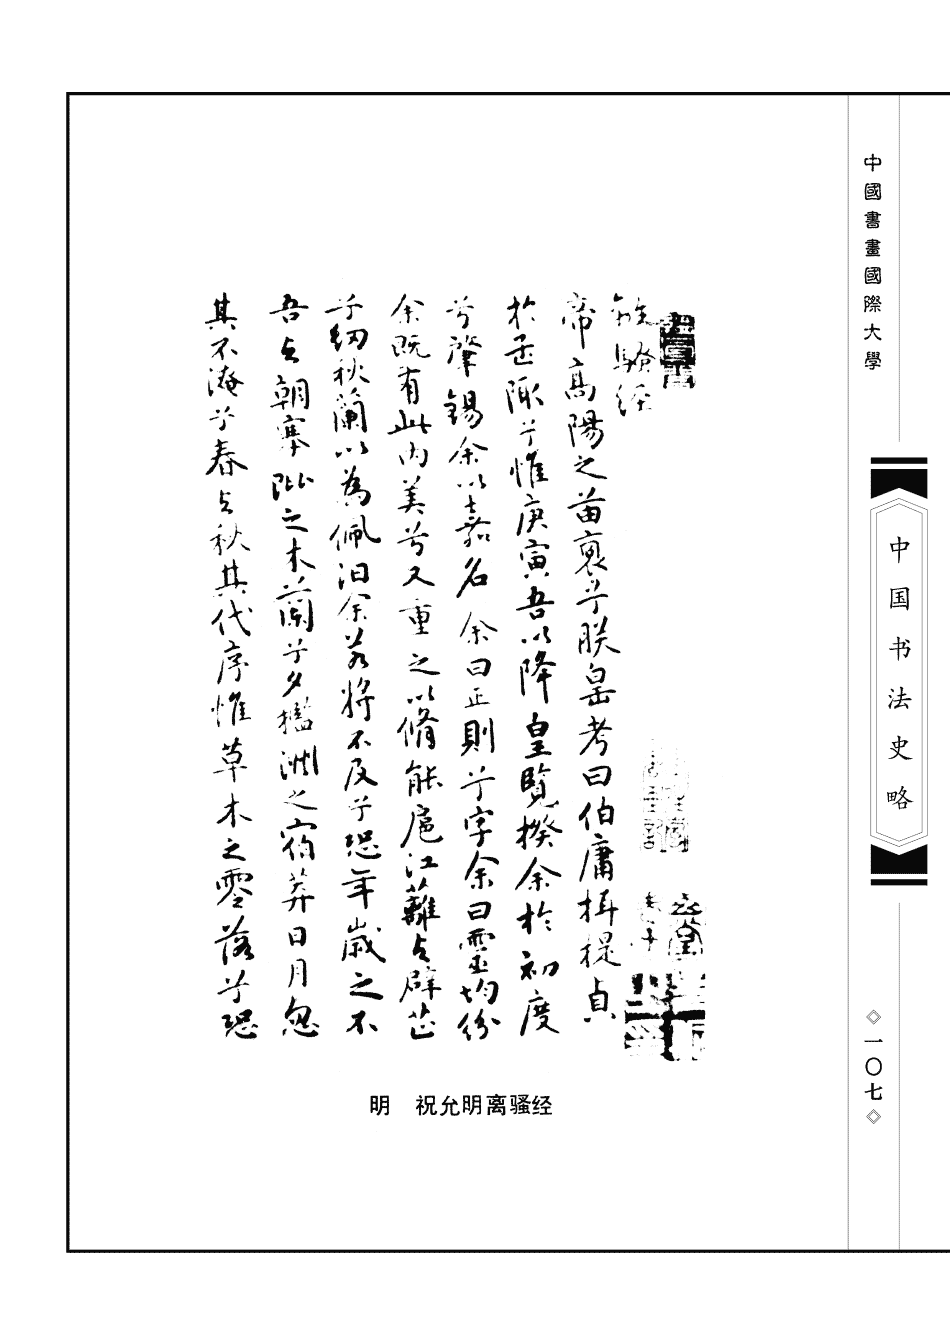 離騷经
帝高陽之苗裔兮朕皇考曰伯庸攝提貞
於孟陬兮惟庚寅吾以降皇覽揆余於初度
兮肇錫余以嘉名余曰正則兮字余曰靈均紛
余既有此内美兮又重之以脩能扈江蘺与辟芷
兮紉秋蘭以為佩汩余若將不及兮恐年歲之不
吾与朝搴阰之木蘭兮夕檻洲之宿莽日月忽
其不淹兮春与秋其代序惟草木之零落兮恐
明 祝允明离骚经
中國書畫國際大學
中国书法史略
一〇七